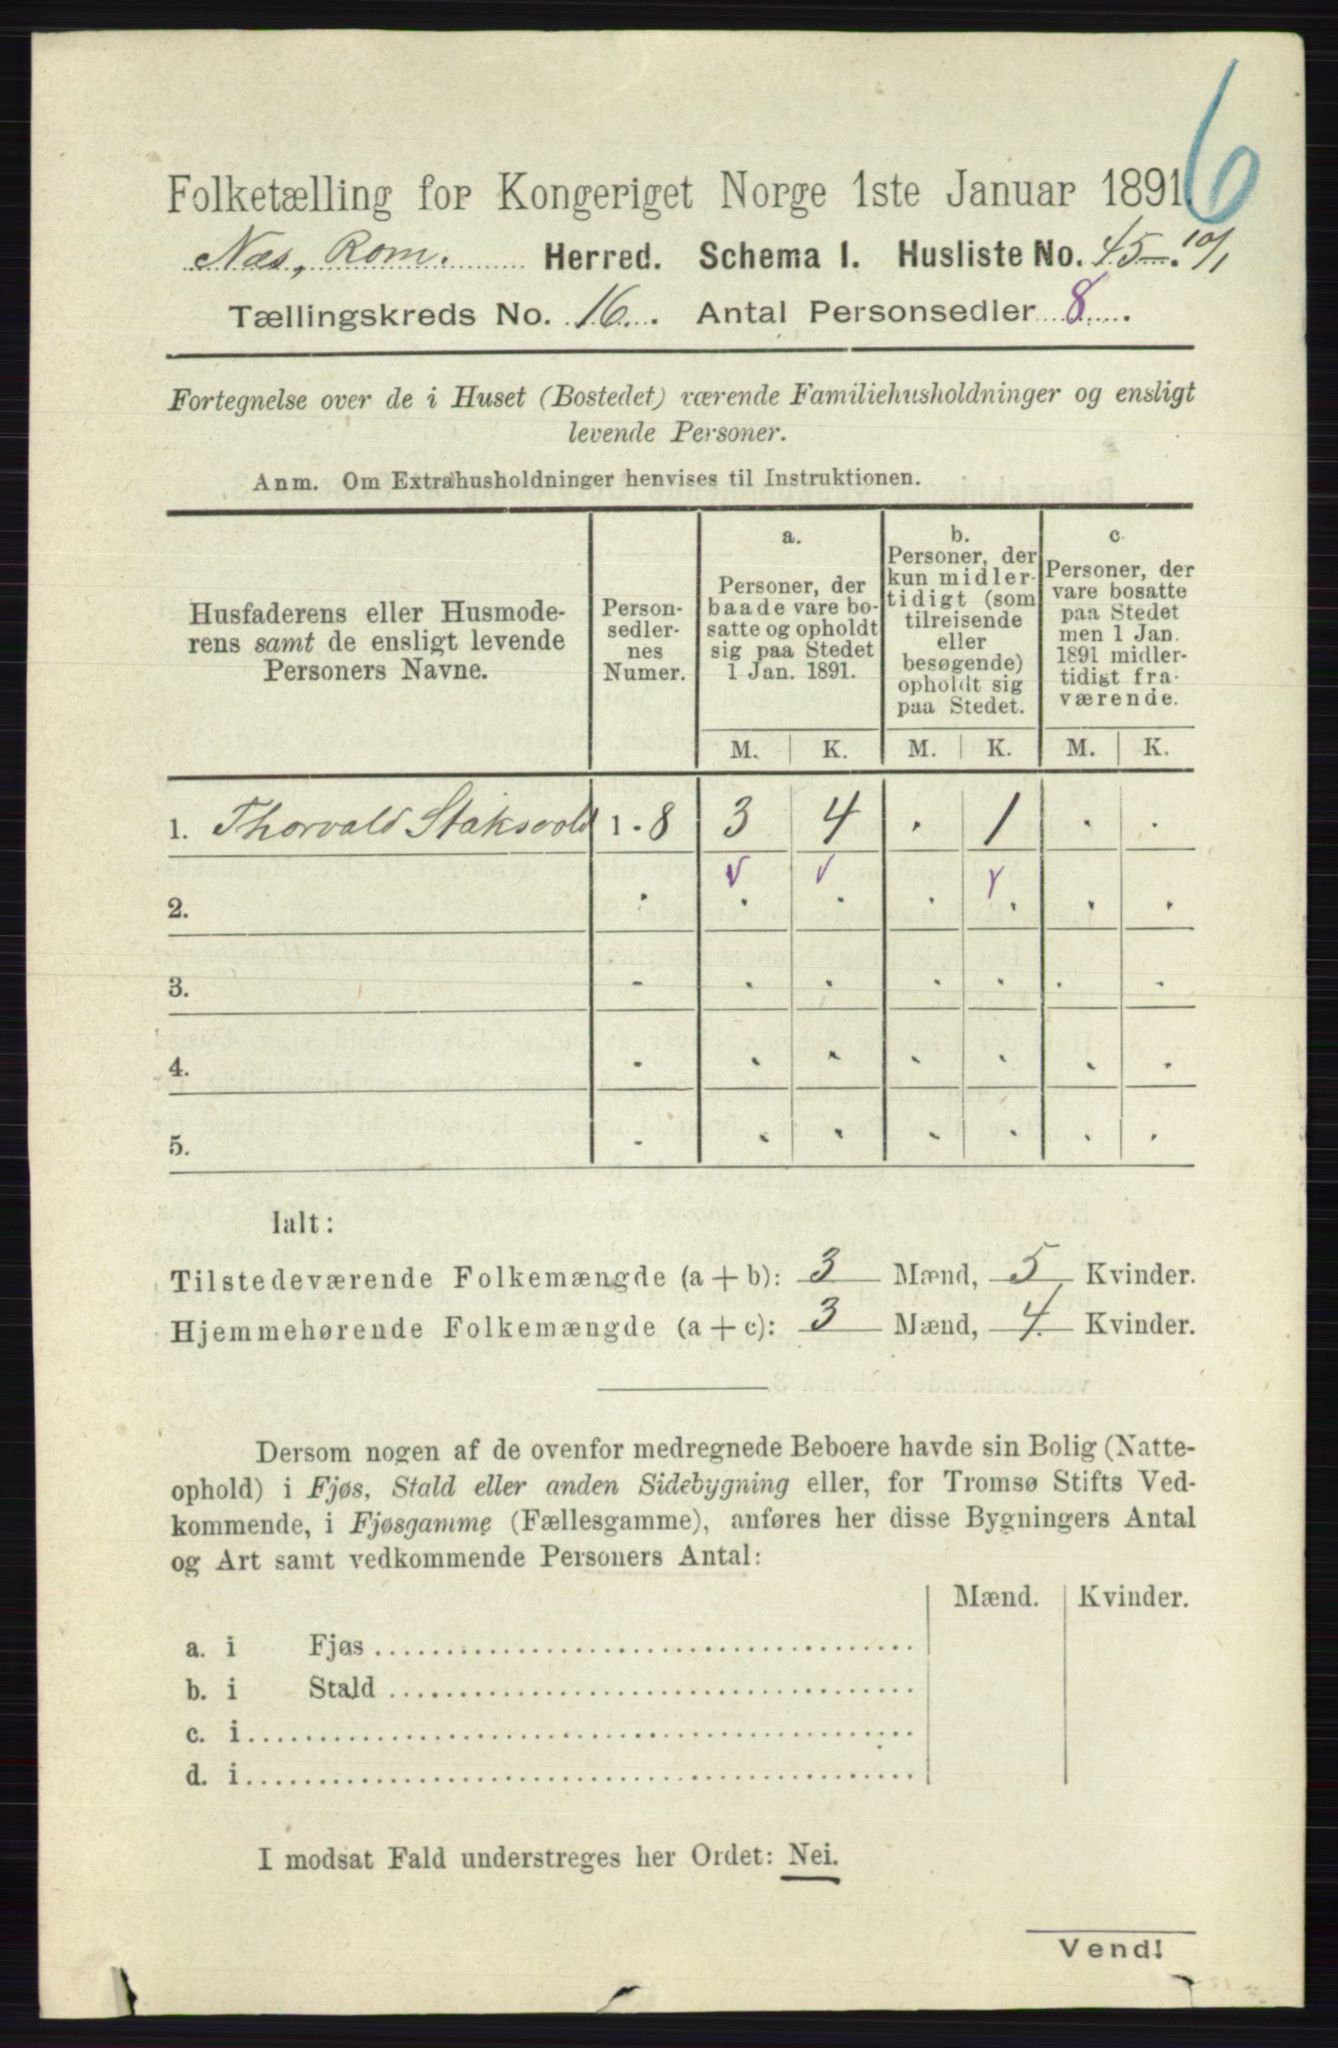 6
Folketælling for Kongeriget Norge 1ste Januar 1891.
Næs, Rom. Herred. Schema I. Husliste No. 45 10/1
Tællingskreds No. 16. Antal Personsedler 8.
Fortegnelse over de i Huset (Bostedet) værende Familiehusholdninger og ensligt
levende Personer.
Anm. Om Extrahusholdninger henvises til Instruktionen.
Husfaderens eller Husmode-
rens samt de ensligt levende
Personers Navne.
Person-
sedler-
nes
Numer.
a.
Personer, der
baade vare bo-
satte og opholdt
sig paa Stedet
1 Jan. 1891.
b.
Personer, der
kun midler-
tidigt (som
tilreisende
eller
besøgende)
opholdt sig
paa Stedet.
c.
Personer, der
vare bosatte
paa Stedet
men 1 Jan.
1891 midler-
tidigt fra-
værende.
M. K. M. K. M. K.
1. Thorvald Staksvold 1 - 8 3 4 . 1 . .
2.
3.
4.
5.
Ialt:
Tilstedeværende Folkemængde (a + b): 3 Mænd, 5 Kvinder.
Hjemmehørende Folkemængde (a + c): 3 Mænd, 4 Kvinder.
Dersom nogen af de ovenfor medregnede Beboere havde sin Bolig (Natte-
ophold) i Fjøs, Stald eller anden Sidebygning eller, for Tromsø Stifts Ved-
kommende, i Fjøsgamme (Fællesgamme), anføres her disse Bygningers Antal
og Art samt vedkommende Personers Antal:
Mænd. Kvinder.
a. i Fjøs
b. i Stald
c. i
d. i
I modsat Fald understreges her Ordet: Nei.
Vend!